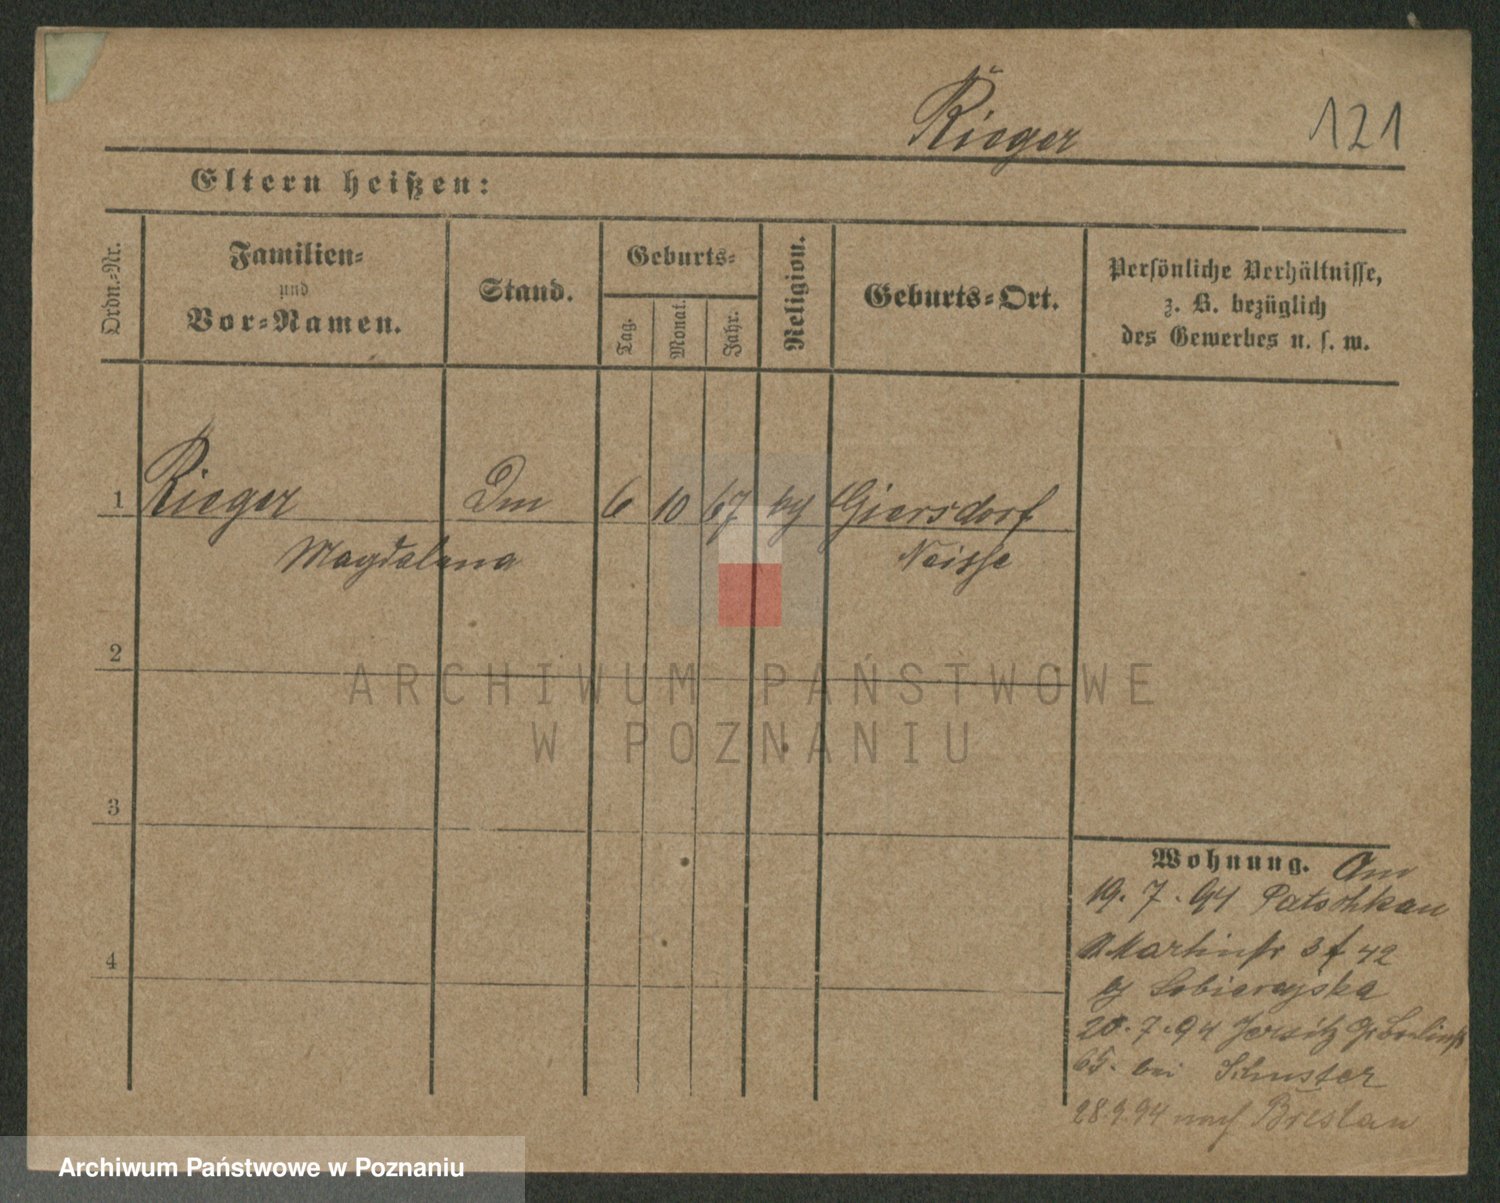 Rieger 121
Eltern heißen:
Ordn.-Nr.
Familien-
und
Vor-Namen.
Stand.
Geburts-
Tag.
Monat.
Jahr.
Religion.
Geburts-Ort.
Persönliche Verhältnisse,
z. B. bezüglich
des Gewerbes u. s. w.
1 Rieger 6 10 67 Giersdorf
Magdalena Neisse
2
3
4
Wohnung. Am
19. 7. 94 Patschkau
Martinstr 42
bei Sobierajska
20. 7. 94 Jersitz Gr Berlinstr
65. bei Schuster
28.9.94 nach Breslau
ARCHIWUM PAŃSTWOWE
W POZNANIU
Archiwum Państwowe w Poznaniu